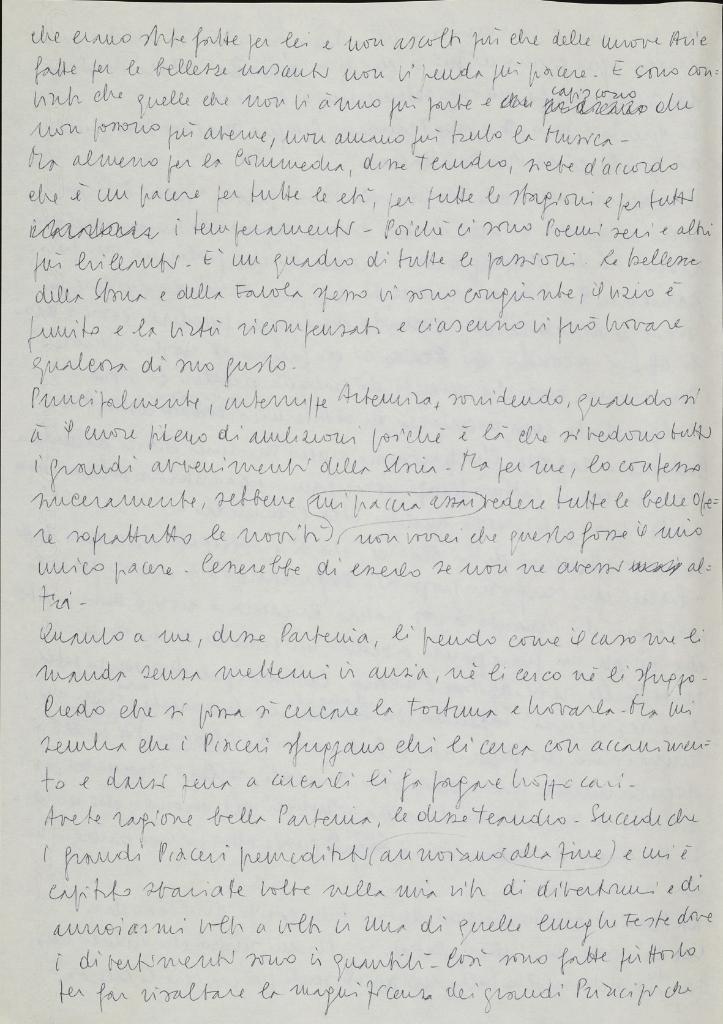 che erano state fatte per lei e non ascolti più che delle nuove Arie
fatte per le bellezze nascenti non vi prenda più piacere. E sono con=
vinta che quelle che non vi ànno più parte e capiscono che
non possono più averne, non amano più tanto la Musica -
Ma almeno per la Commedia, disse Teandro, siete d'accordo
che è un piacere per tutte le età, per tutte le stagioni e per tutti
i temperamenti - Poiché ci sono Poemi seri e altri
più brillanti. E' un quadro di tutte le passioni. Le bellezze
della Storia e della Favola spesso vi sono congiunte, il vizio è
punito e la virtù ricompensata e ciascuno vi può trovare
qualcosa di suo gusto.
Principalmente, interruppe Artemira, sorridendo, quando si
à il cuore pieno di ambizioni poiché è là che si vedono tutti
i grandi avvenimenti della Storia - Ma per me, lo confesso
sinceramente, sebbene mi piaccia assai vedere tutte le belle Ope=
re soprattutto le novità, non vorrei che questo fosse il mio
unico piacere - Cesserebbe di esserlo se non ne avessi al=
tri -
Quanto a me, disse Partenia, li prendo come il caso me li
manda senza mettermi in ansia, nè li cerco nè li sfuggo -
Credo che si possa sì cercare la Fortuna e trovarla - Ma mi
sembra che i Piaceri sfuggano chi li cerca con accanimen=
to e darsi pena a cercarli li fa pagare troppo cari -
Avete ragione bella Partenia, le disse Teandro - Succede che
i grandi Piaceri premeditati (annoiano alla fine) e mi è
capitato svariate volte nella mia vita di divertirmi e di
annoiarmi volta a volta in una di quelle lunghe Feste dove
i divertimenti sono in quantità - Così sono fatte piuttosto
per far risaltare la magnificenza dei grandi Principi che